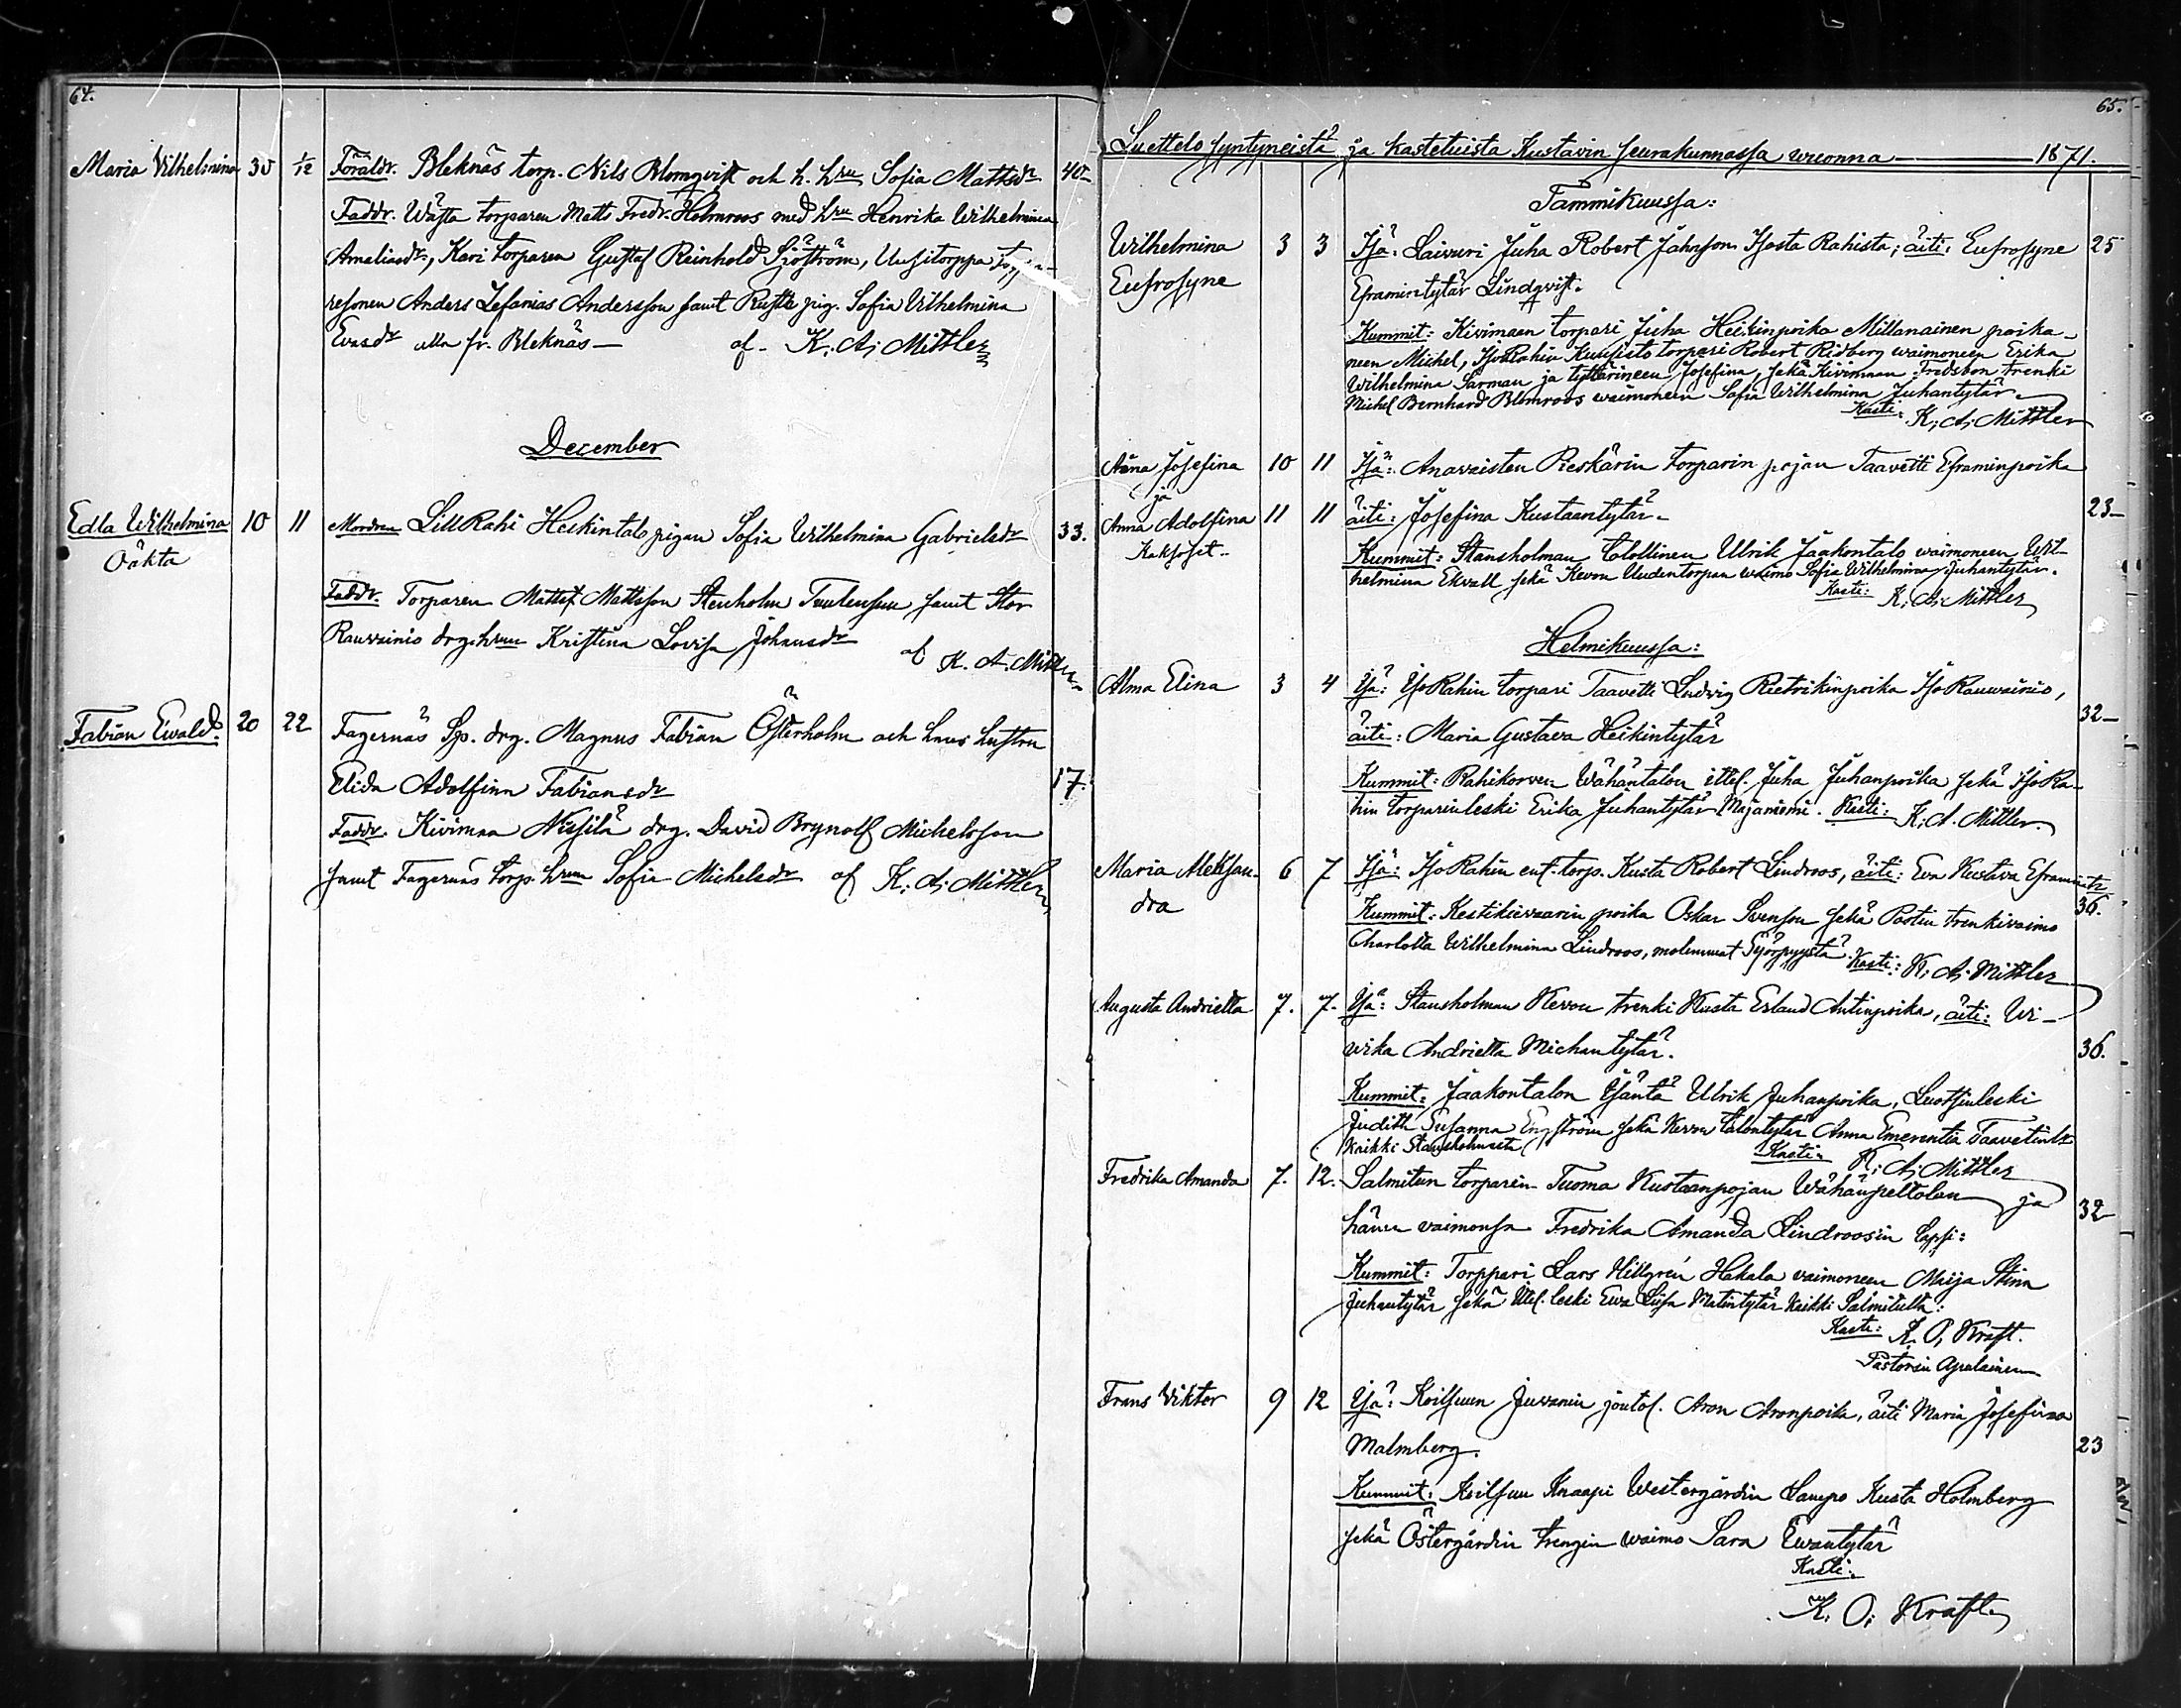 64.
Maria Wilhelmina 30 1/12 Föräldr. Bleknäs torp. Nils Blomqvist och h. hru Sofia Mattsdr 40
Faddr. Wästa torparen Matts Fredr. Holmroos med hru Henrika Wilhelmina
Ameliasdr, Kari torparen Gustaf Reinhold Sjöström, Uusitorppa
Anders Zefanias Andersson samt pig. Sofia Wilhelmina
Evasdr alla fr. Bleknäs — af K. A. Mittler
December
Edla Wilhelmina 10 11 Modren LillRahi Heikintalo pigan Sofia Wilhelmina Gabrielsdr 33.
Oäkta
Faddr. Torparen Mattsson Stenholm samt Stor
Rauvainio drg. hrun Kristina Lovisa Johansdr
af K. A. Mittler
Fabian Ewald 20 22 Fagernäs Sp. drg. Magnus Fabian Österholm och hans hustru
Elida Adolfina Fabiansdr 17.
Faddr. Kivimaa Nissilä drg. David Brynolf Michelsson
samt Fagernäs torp. hrun Sofia Michelsdr af K. A. Mittler
65.
Luettelo syntyneistä ja kastetuista Kustavin seurakunnassa wuonna — 1871.
Tammikuussa:
Wilhelmina 3 3 Isä: Laivuri Juha Robert Jahnson Isosta Rahista; äiti: Eufrosyne 25
Eufrosyne Eframintytär Lindqvist.
Kummit: Kivimaan torpari Juha Heikinpoika Millanainen poika-
neen Michel, IsoRahin Kuusisto torpari Robert Ridberg waimoneen Erika
Wilhelmina Sarman ja tyttärineen Josefina, sekä Kivimaan Fredsbon trenki
Michel Bernhard Blomroos waimoneen Sofia Wilhelmina Juhantytär.
Kasti: K. A. Mittler
Anna Josefina 10 11 Isä: Anavaisten Pieskärin torparin pojan Taavetti Eframinpoika
ja
Anna Adolfina 11 11 äiti: Josefina Kustaantytär. 23
Kaksoset.
Kummit: Stansholman Ulrik Jaakontalo waimoneen Wil-
helmina Ekvall sekä Kevon Uudentorpan waimo Sofia Wilhelmina Juhantytär.
Kasti: K. A. Mittler
Helmikuussa:
Alma Elina 3 4 Isä: IsoRahin torpari Taavetti Ludvig Rietrikinpoika IsoRauwainio,
äiti: Maria Gustava Heikintytär 32
Kummit: Rahikorven Wähäntalon ittel. Juha Juhanpoika sekä IsoRa-
hin torparinleski Erika Juhantytär Majaniemi. Kasti: K. A. Mittler.
Maria Aleksan- 6 7 Isä: IsoRahin ent. torp. Kusta Robert Lindroos, äiti: Eva Kustava Eframintr
dra 36.
Kummit: Kestikievaarin poika Oskar Svenson sekä Postin trenkivaimo
Charlotta Wilhelmina Lindroos, molemmat Syörpyystä. Kasti: K. A. Mittler
Augusta Andrietta 7. 7. Isä: Stansholman Kevon trenki Kusta Erland Antinpoika, äiti: Wi-
vika Andrietta Michantytär. 36.
Kummit: Jaakontalon Isäntä Ulrik Juhanpoika, Luotsinleski
Judith Susanna Engström sekä Kevon talontytär Anna Emerentia Taavetintr
Kaikki Stansholmasta Kasti: K. A. Mittler
Fredrika Amanda 7. 12. Salmitun torparin Tuoma Kustaanpojan Wähäänpeltolan ja
hänen vaimonsa Fredrika Amanda Lindroosin lapsi: 32
Kummit: Torppari Lars Hillgrén Hakala vaimoneen Maija Stina
Juhantytär sekä Itel. leski Ewa Liisa Matintytär Kaikki Salmitulta:
Kasti: K. O. Kraft.
Pastorin Apulainen
Frans Viktor 9 12 Isä: Koilsuun Juvanin Aron Aronpoika, äiti Maria Josefina
Malmberg. 23
Kummit: Koilsuu Knaapi Westergårdin Lampo Kusta Holmberg
sekä Östergårdin trengin waimo Sara Ewantytär
Kasti:
K. O. Kraft